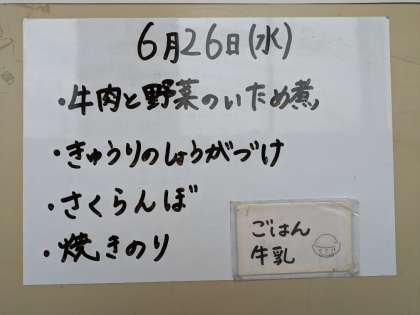 6月26日(水)
・牛肉と野菜のいため煮
・きゅうりのしょうがづけ
・さくらんぼ
・焼きのり
ごはん
牛乳